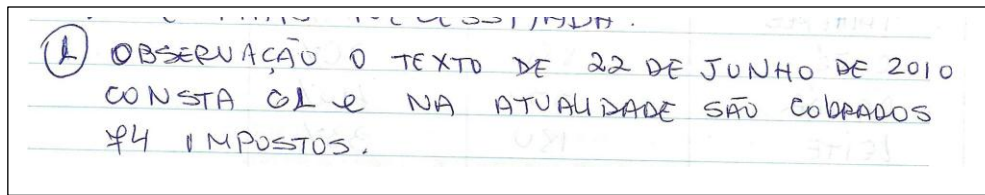 (1) OBSERVAÇÃO O TEXTO DE 22 DE JUNHO DE 2010
CONSTA 61 e NA ATUALIDADE SÃO COBRADOS
74 IMPOSTOS.